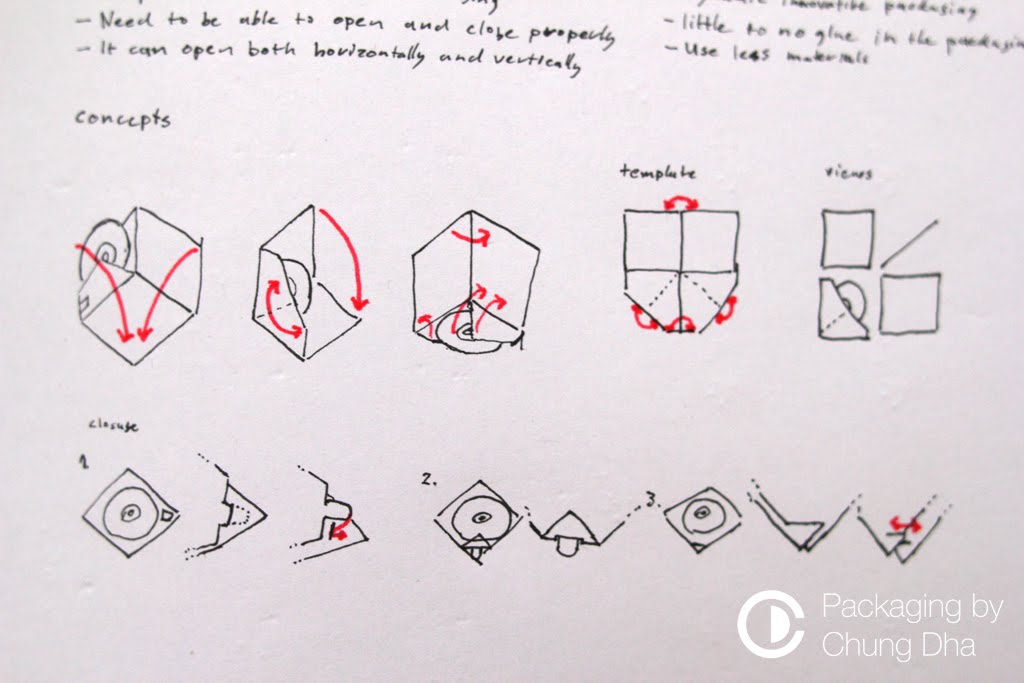 - Need to be able to open and close properly
- It can open both horizontally and vertically
innovative packaging
- little to no glue in the packaging
- Use less materials
concepts
template
views
closure
1.
2.
3.
Packaging by
Chung Dha